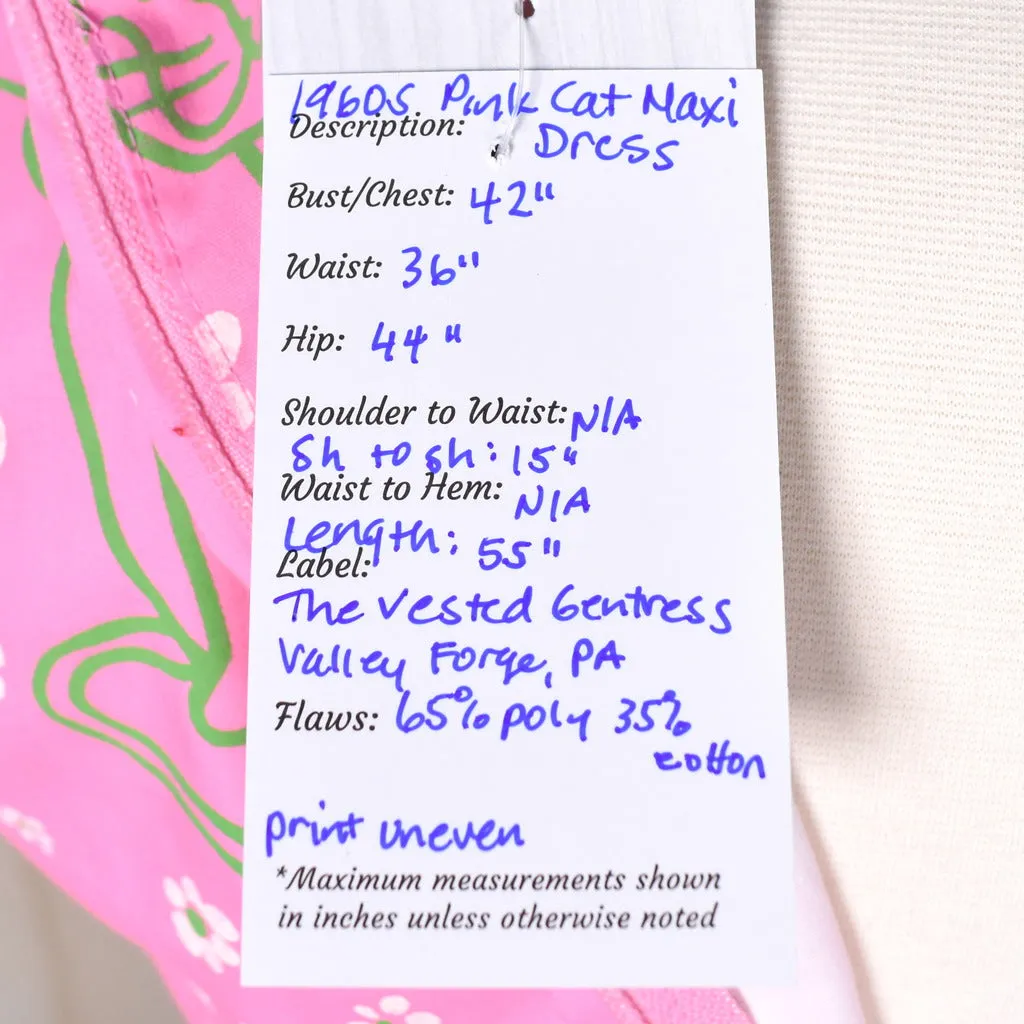 1960s Pink Cat Maxi
Description: Dress
Bust/Chest: 42"
Waist: 36"
Hip: 44"
Shoulder to Waist: N/A
Sh to sh: 15"
Waist to Hem: N/A
Length: 55"
Label:
The Vested Gentress
Valley Forge, PA
Flaws: 65% poly 35%
cotton
print uneven
*Maximum measurements shown
in inches unless otherwise noted